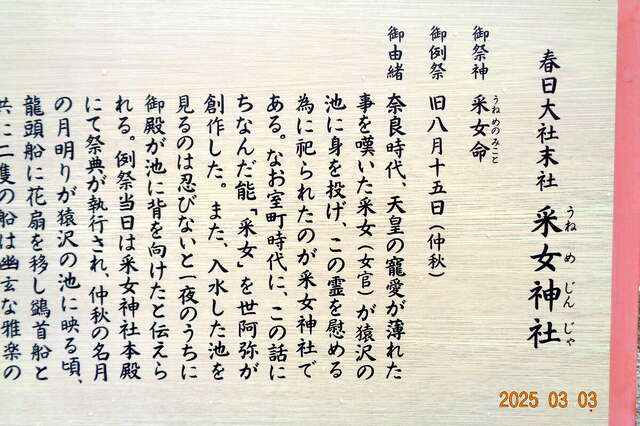 春日大社末社 采女神社
うねめじんじゃ
御祭神 采女命
うねめのみこと
御例祭 旧八月十五日(仲秋)
御由緒 奈良時代、天皇の寵愛が薄れた
事を嘆いた采女(女官)が猿沢の
池に身を投げ、この霊を慰める
為に祀られたのが采女神社で
ある。なお室町時代に、この話に
ちなんだ能「采女」を世阿弥が
創作した。また、入水した池を
見るのは忍びないと一夜のうちに
御殿が池に背を向けたと伝えら
れる。例祭当日は采女神社本殿
にて祭典が執行され、仲秋の名月
の月明りが猿沢の池に映る頃、
龍頭船に花扇を移し鷁首船と
共に二隻の船は幽玄な雅楽の
2025 03 03